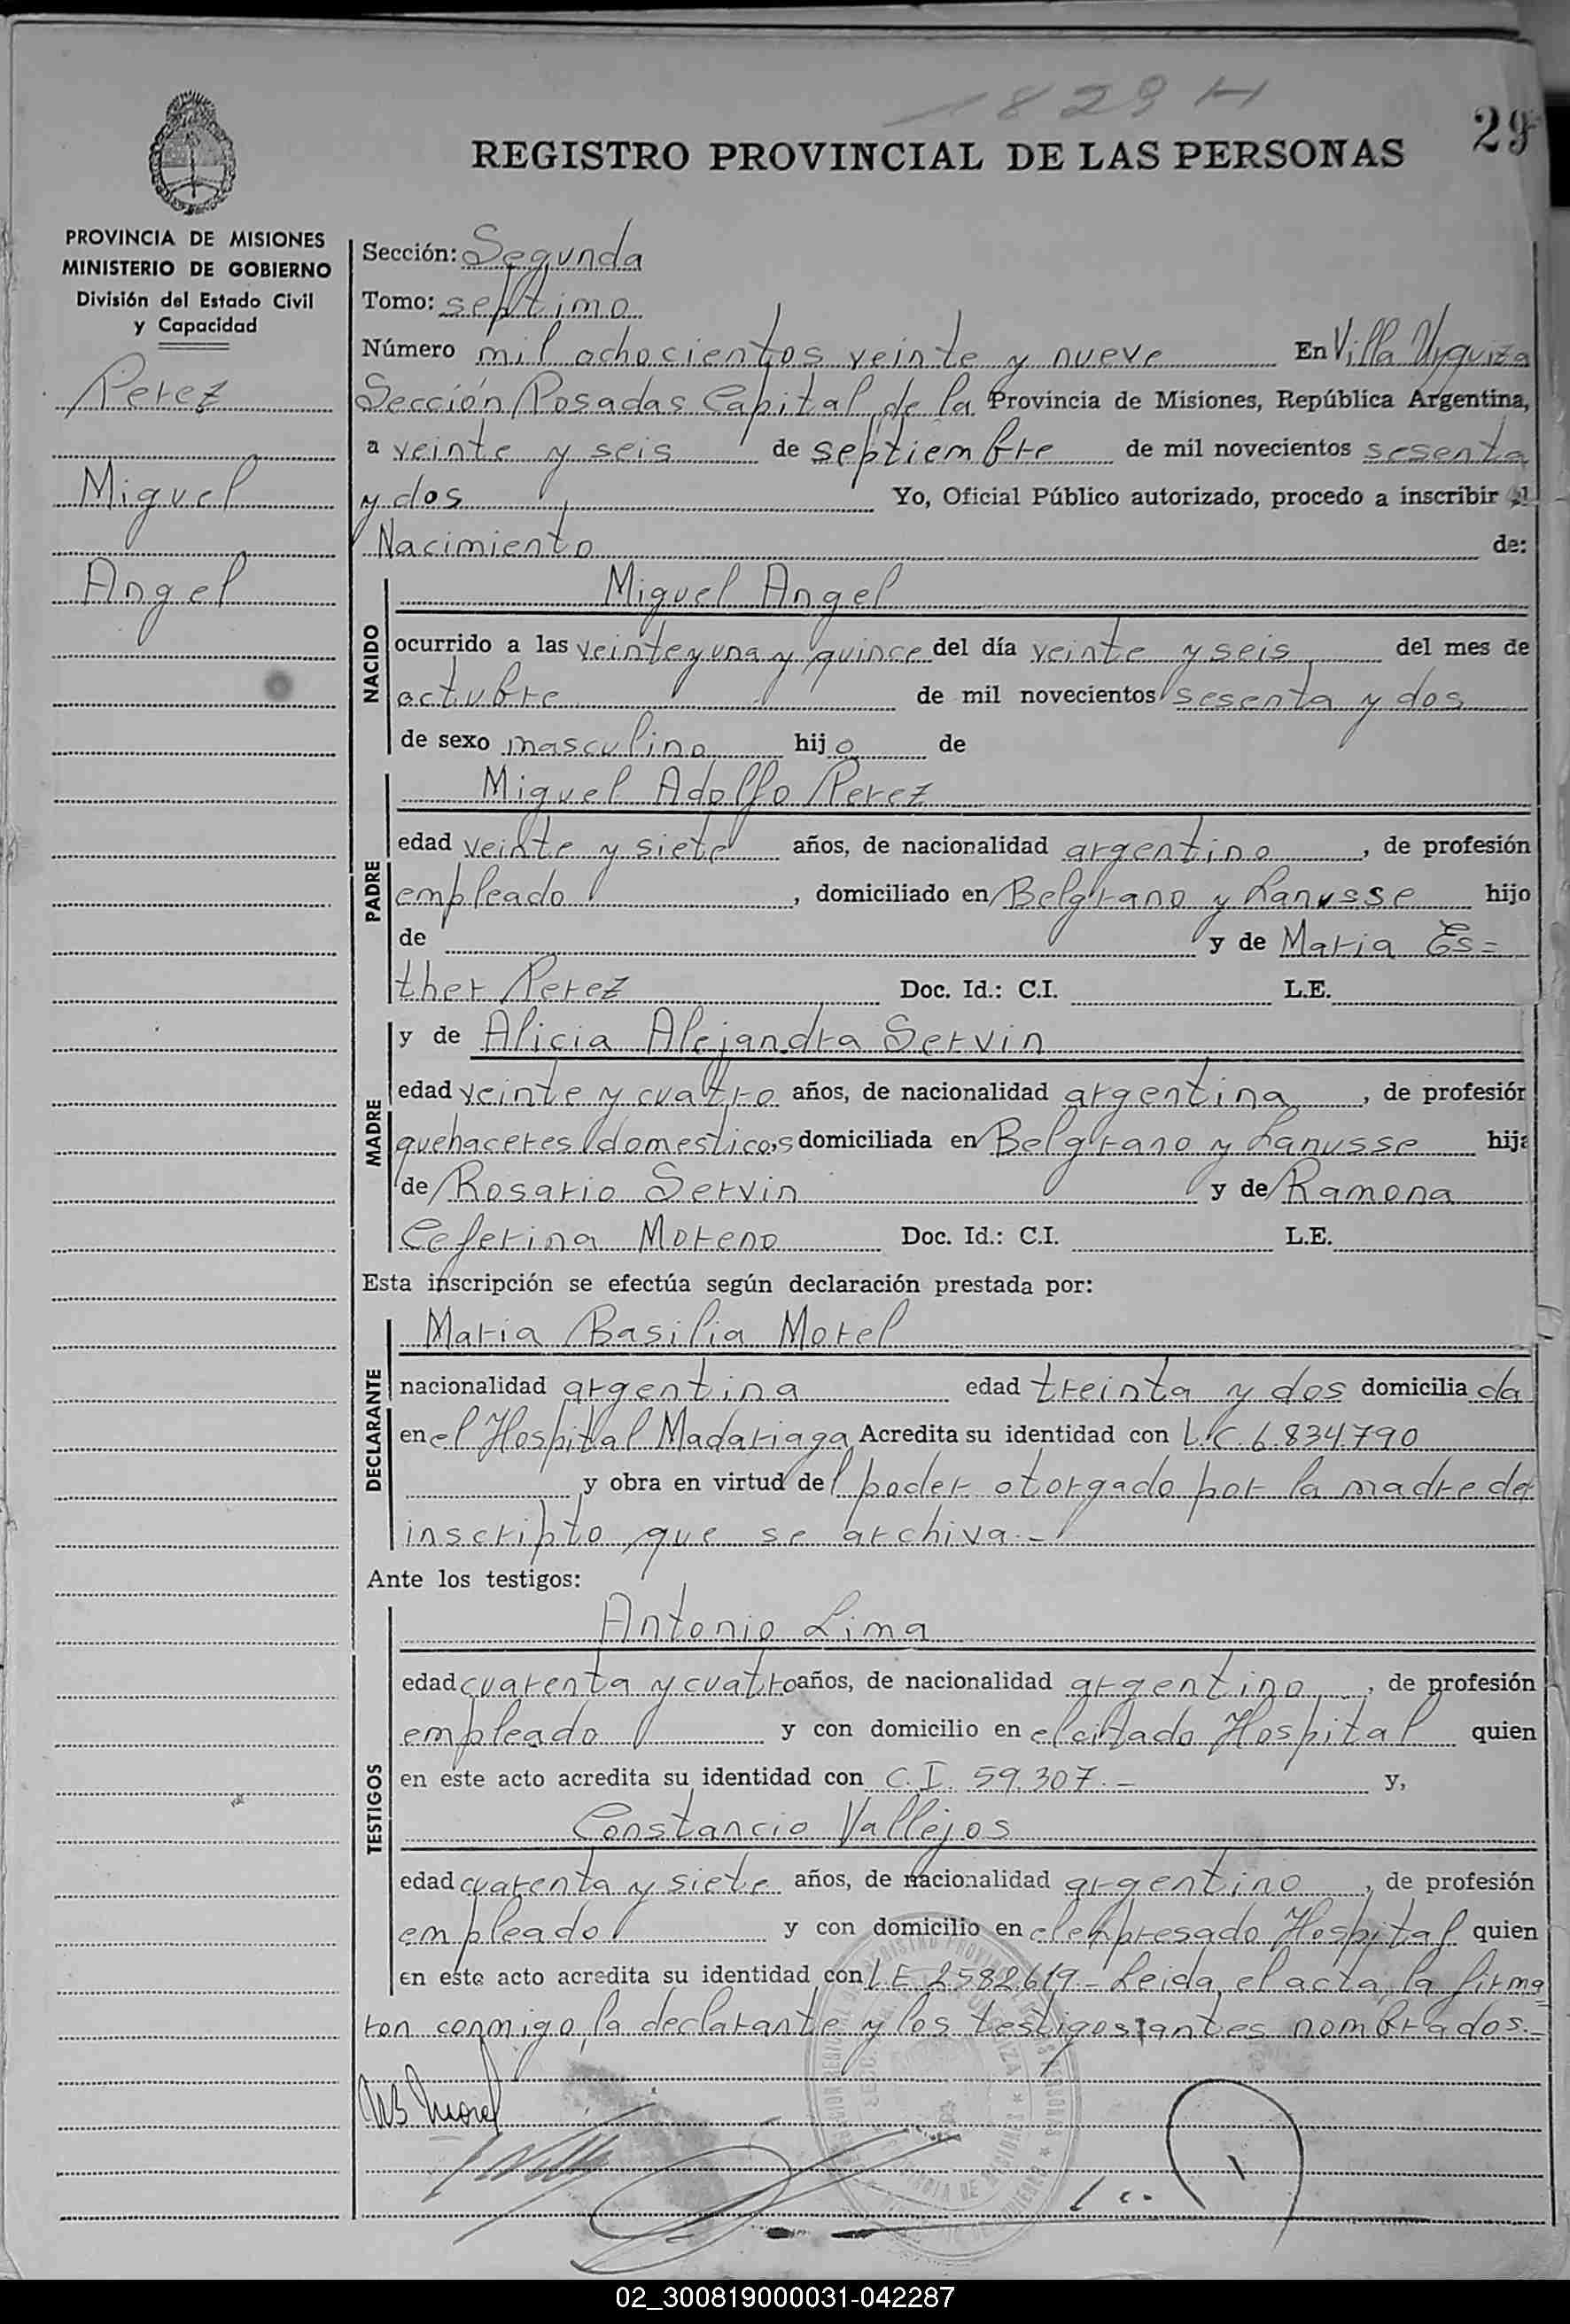 1829 H
29
REGISTRO PROVINCIAL DE LAS PERSONAS
PROVINCIA DE MISIONES
MINISTERIO DE GOBIERNO
División del Estado Civil
y Capacidad
Perez
Miguel
Angel
Sección: Segunda
Tomo: septimo
Número mil ochocientos veinte y nueve En Villa Urquiza
Sección Posadas Capital de la Provincia de Misiones, República Argentina,
a veinte y seis de septiembre de mil novecientos sesenta
y dos Yo, Oficial Público autorizado, procedo a inscribir el
Nacimiento de:
NACIDO
Miguel Angel
ocurrido a las veinte y una y quince del día veinte y seis del mes de
octubre de mil novecientos sesenta y dos
de sexo masculino hijo de
PADRE
Miguel Adolfo Perez
edad veinte y siete años, de nacionalidad argentino, de profesión
empleado, domiciliado en Belgrano y Lanusse hijo
de y de Maria Es=
ther Perez Doc. Id.: C.I. L.E.
MADRE
y de Alicia Alejandra Servin
edad veinte y cuatro años, de nacionalidad argentina, de profesión
quehaceres domesticos, domiciliada en Belgrano y Lanusse hija
de Rosario Servin y de Ramona
Ceferina Moreno Doc. Id.: C.I. L.E.
Esta inscripción se efectúa según declaración prestada por:
DECLARANTE
Maria Basilia Morel
nacionalidad argentina edad treinta y dos domiciliada
en el Hospital Madariaga Acredita su identidad con L.C. 6.834.790
y obra en virtud del poder otorgado por la madre del
inscripto que se archiva.-
Ante los testigos:
TESTIGOS
Antonio Lima
edad cuarenta y cuatro años, de nacionalidad argentino, de profesión
empleado y con domicilio en el citado Hospital quien
en este acto acredita su identidad con C.I. 59.307.- y,
Constancio Vallejos
edad cuarenta y siete años, de nacionalidad argentino, de profesión
empleado y con domicilio en el expresado Hospital quien
en este acto acredita su identidad con L.E. 2582619- Leida el acta, la firma
ron conmigo, la declarante y los testigos antes nombrados.-
MB Morel
02_300819000031-042287